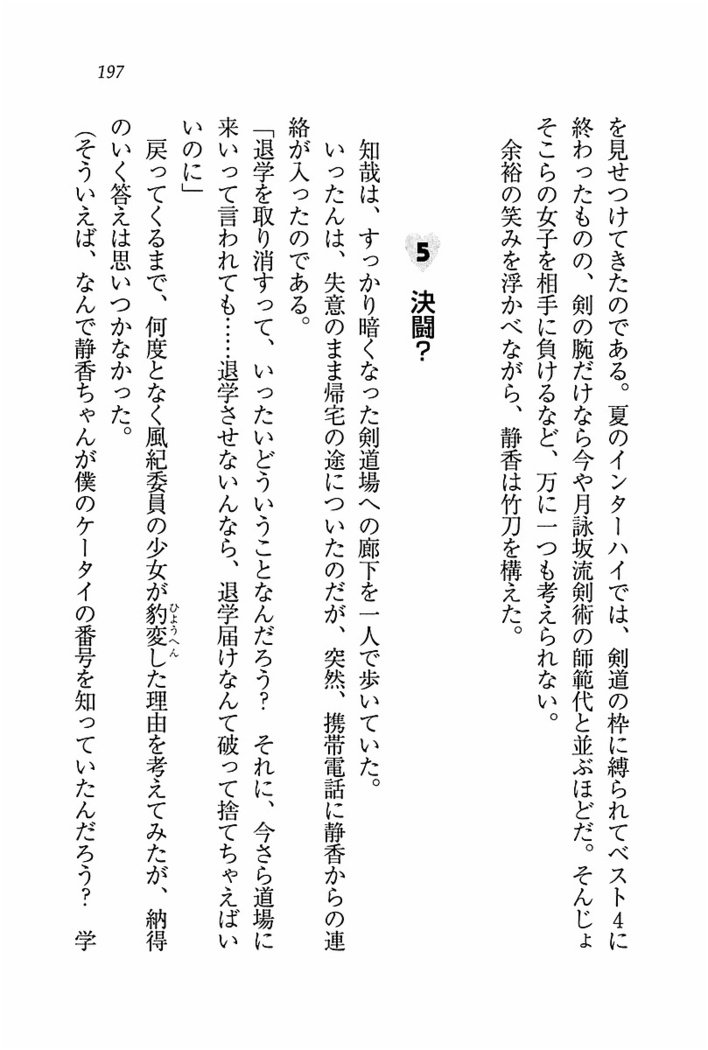 197
を見せつけてきたのである。夏のインターハイでは、剣道の枠に縛られてベスト4に
終わったものの、剣の腕だけなら今や月詠坂流剣術の師範代と並ぶほどだ。そんじょ
そこらの女子を相手に負けるなど、万に一つも考えられない。
余裕の笑みを浮かべながら、静香は竹刀を構えた。
5 決闘？
知哉は、すっかり暗くなった剣道場への廊下を一人で歩いていた。
いったんは、失意のまま帰宅の途についたのだが、突然、携帯電話に静香からの連
絡が入ったのである。
「退学を取り消すって、いったいどういうことなんだろう？　それに、今さら道場に
来いって言われても……退学させないんなら、退学届けなんて破って捨てちゃえばい
いのに」
戻ってくるまで、何度となく風紀委員の少女が豹変した理由を考えてみたが、納得
ひょうへん
のいく答えは思いつかなかった。
（そういえば、なんで静香ちゃんが僕のケータイの番号を知っていたんだろう？　学